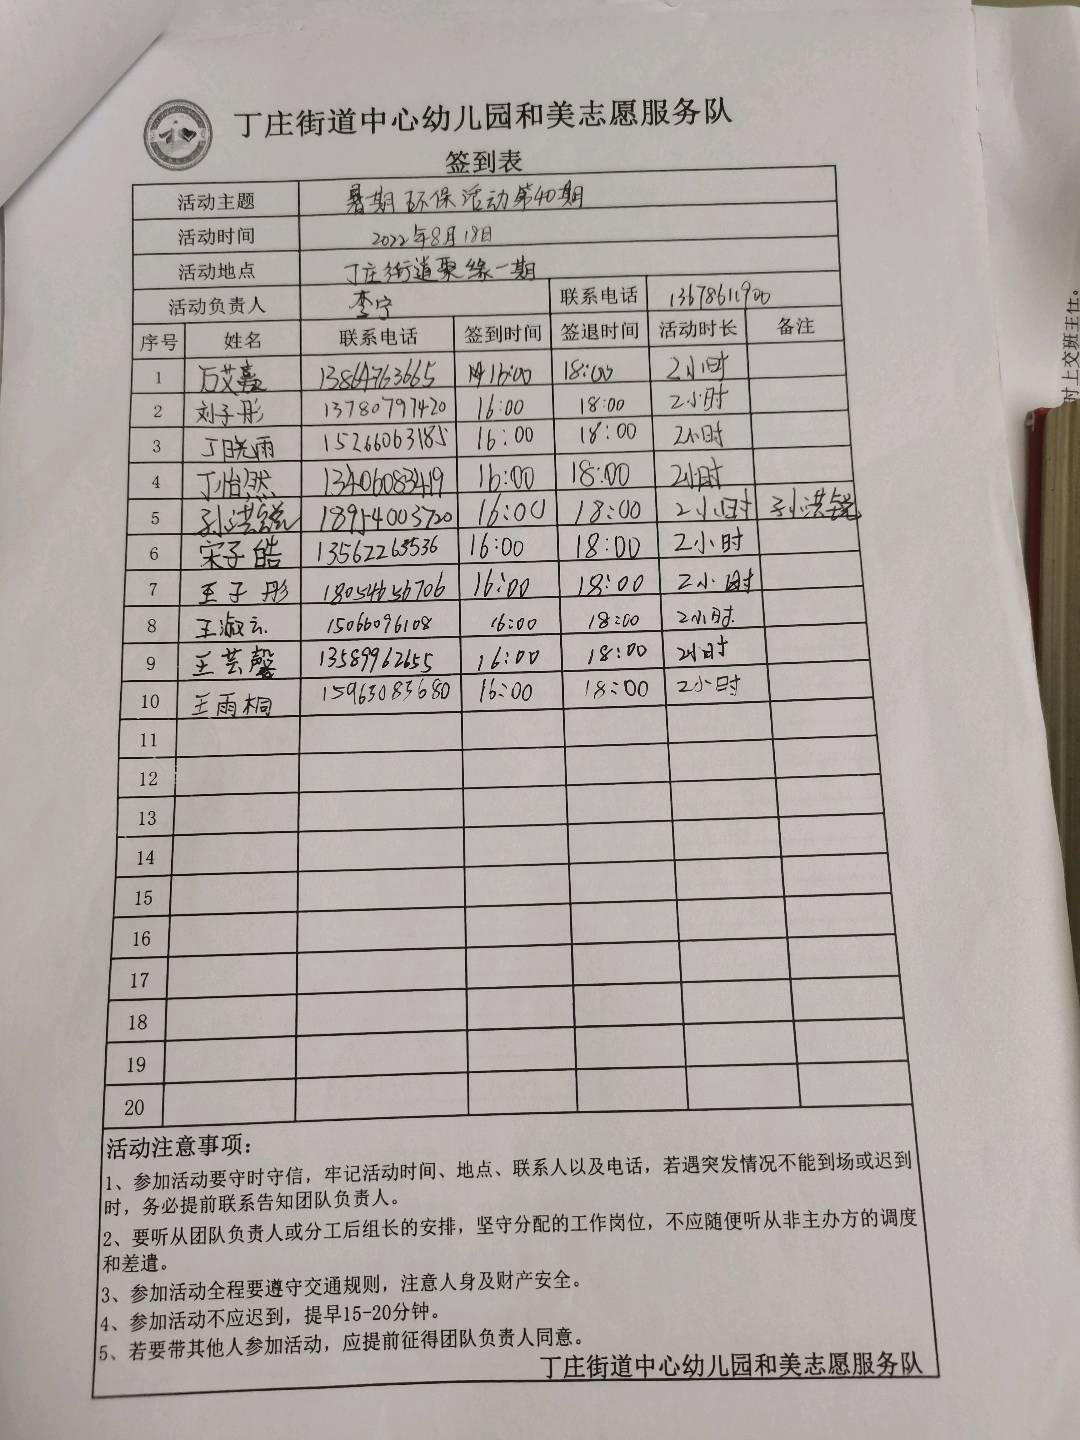 丁庄街道中心幼儿园和美志愿服务队
签到表
活动主题 暑期环保活动第40期
活动时间 2022年8月18日
活动地点 丁庄街道聚缘一期
活动负责人 李宁 联系电话 13678611900
序号 姓名 联系电话 签到时间 签退时间 活动时长 备注
1 13864763665 16:00 18:00 2小时
2 刘子彤 13780797420 16:00 18:00 2小时
3 丁晓雨 15266063185 16:00 18:00 2小时
4 丁怡然 13406083419 16:00 18:00 2小时
5 孙洪锐 18954003720 16:00 18:00 2小时 孙洪锐
6 宋子皓 13562263536 16:00 18:00 2小时
7 王子彤 18054656706 16:00 18:00 2小时
8 王淑云 15066096108 16:00 18:00 2小时
9 王芸馨 13589962655 16:00 18:00 2小时
10 王雨桐 15963083680 16:00 18:00 2小时
11
12
13
14
15
16
17
18
19
20
活动注意事项：
1、参加活动要守时守信，牢记活动时间、地点、联系人以及电话，若遇突发情况不能到场或迟到
时，务必提前联系告知团队负责人。
2、要听从团队负责人或分工后组长的安排，坚守分配的工作岗位，不应随便听从非主办方的调度
和差遣。
3、参加活动全程要遵守交通规则，注意人身及财产安全。
4、参加活动不应迟到，提早15-20分钟。
5、若要带其他人参加活动，应提前征得团队负责人同意。
丁庄街道中心幼儿园和美志愿服务队
时上交班主任。